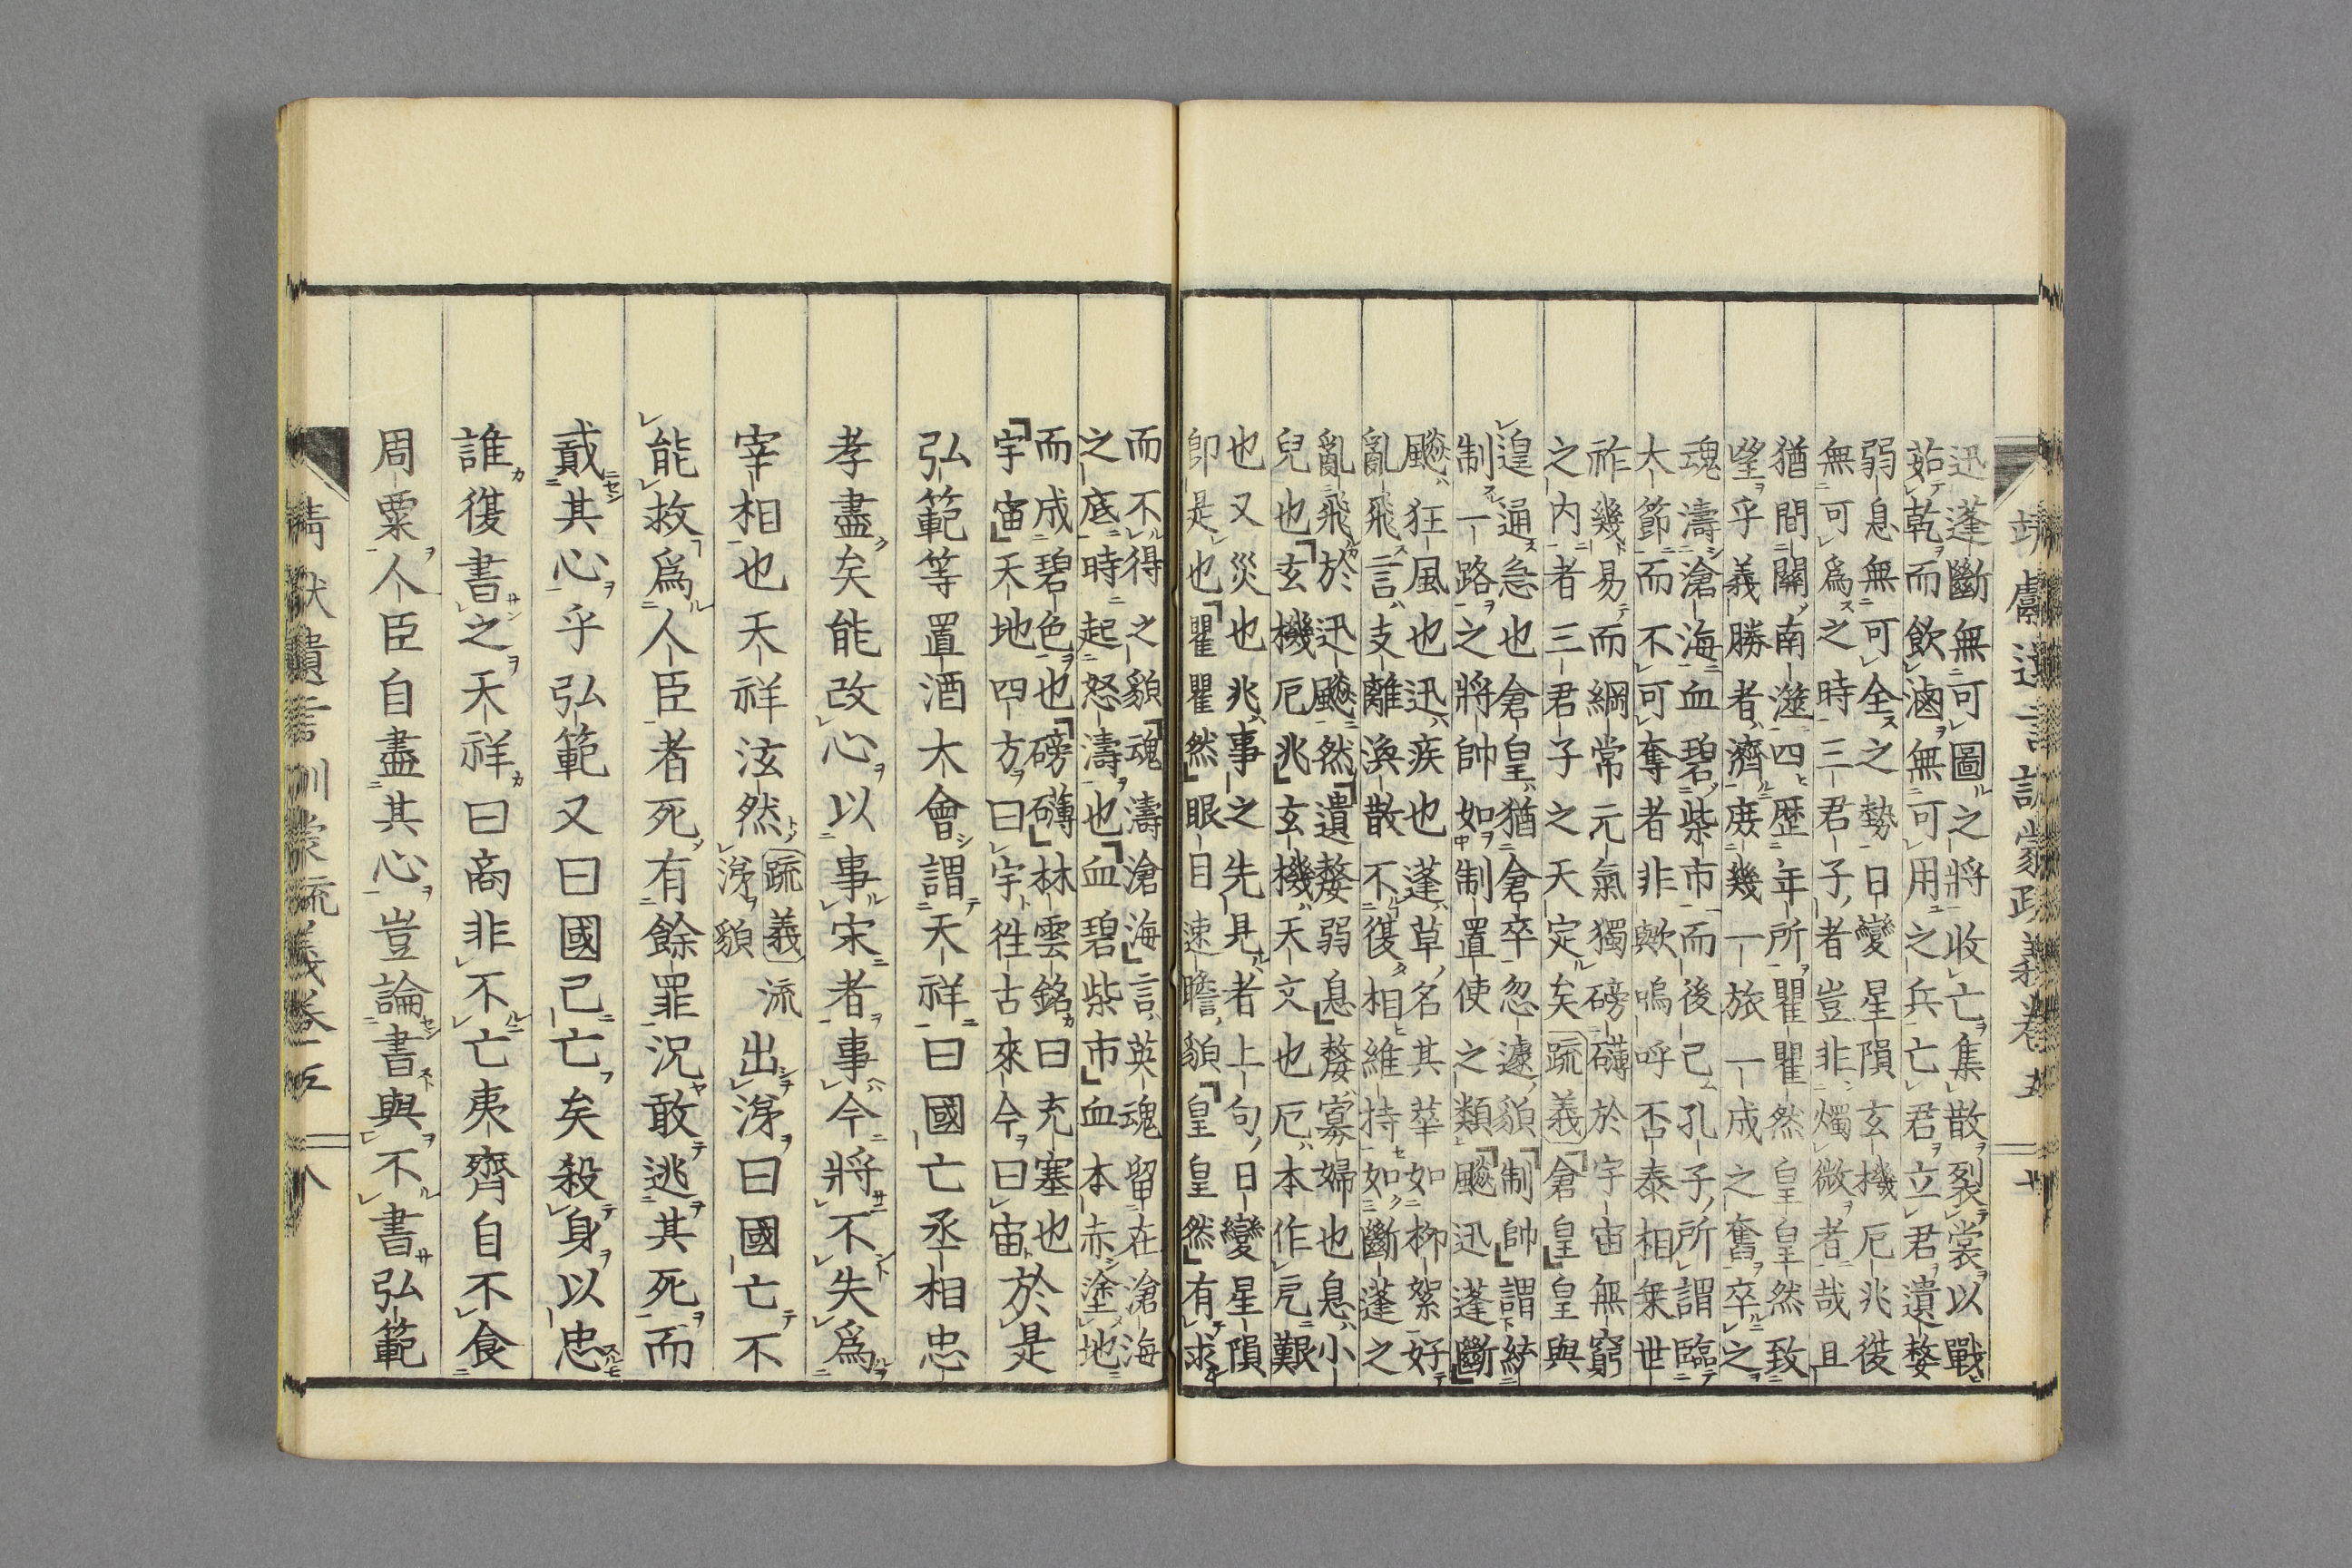 靖獻遺言訓蒙疏義卷五 十
迅蓬斷無可圖之將收亡集散裂裳以戰
茹乾而飮滷無可用之兵亡君立君遺嫠
弱息無可全之勢日變星隕玄機厄兆從
無可爲之時三君子者豈非燭微者哉且
猶間關南遊四歷年所瞿瞿然皇皇然致
望乎義勝者濟庻幾一旅一成之奮卒之
魂濤滄海血碧柴市而後已孔子所謂臨
大節而不可奪者非歟嗚呼否泰相乗世
祚幾易而綱常元氣獨磅礴於宇宙無窮
之内者三君子之天定矣疏義「倉皇」皇與
遑通急也倉皇猶倉卒忽遽貌「制帥」謂統
制一路之將帥如制置使之類「飈迅蓬斷」
飈狂風也迅疾也蓬草名其莘如柳絮好
亂飛言支離渙散不復相維持如斷蓬之
亂飛於迅飈然「遺嫠弱息」嫠寡婦也息小
兒也「玄機厄兆」玄機天文也厄本作戹艱
也又災也兆事之先見者上句日變星隕
卽是也「瞿瞿然」眼目速瞻貌「皇皇然」有求
而不得之貌「魂濤滄海」言英魂留在滄海
之底時起怒濤也「血碧柴市」血本赤塗地
而成碧色也「磅礴」林雲銘曰充塞也
「宇宙」天地四方曰宇徃古來今曰宙
於是
弘範等置酒大會謂天祥曰國亡丞相忠
孝盡矣能改心以事宋者事今將不失爲
宰相也天祥泫然疏義流涕貌出涕曰國亡不
能救爲人臣者死有餘罪況敢逃其死而
貳其心乎弘範又曰國已亡矣殺身以忠
誰復書之天祥曰商非不亡夷齊自不食
周粟人臣自盡其心豈論書與不書弘範
靖獻遺言訓蒙疏義卷五 八